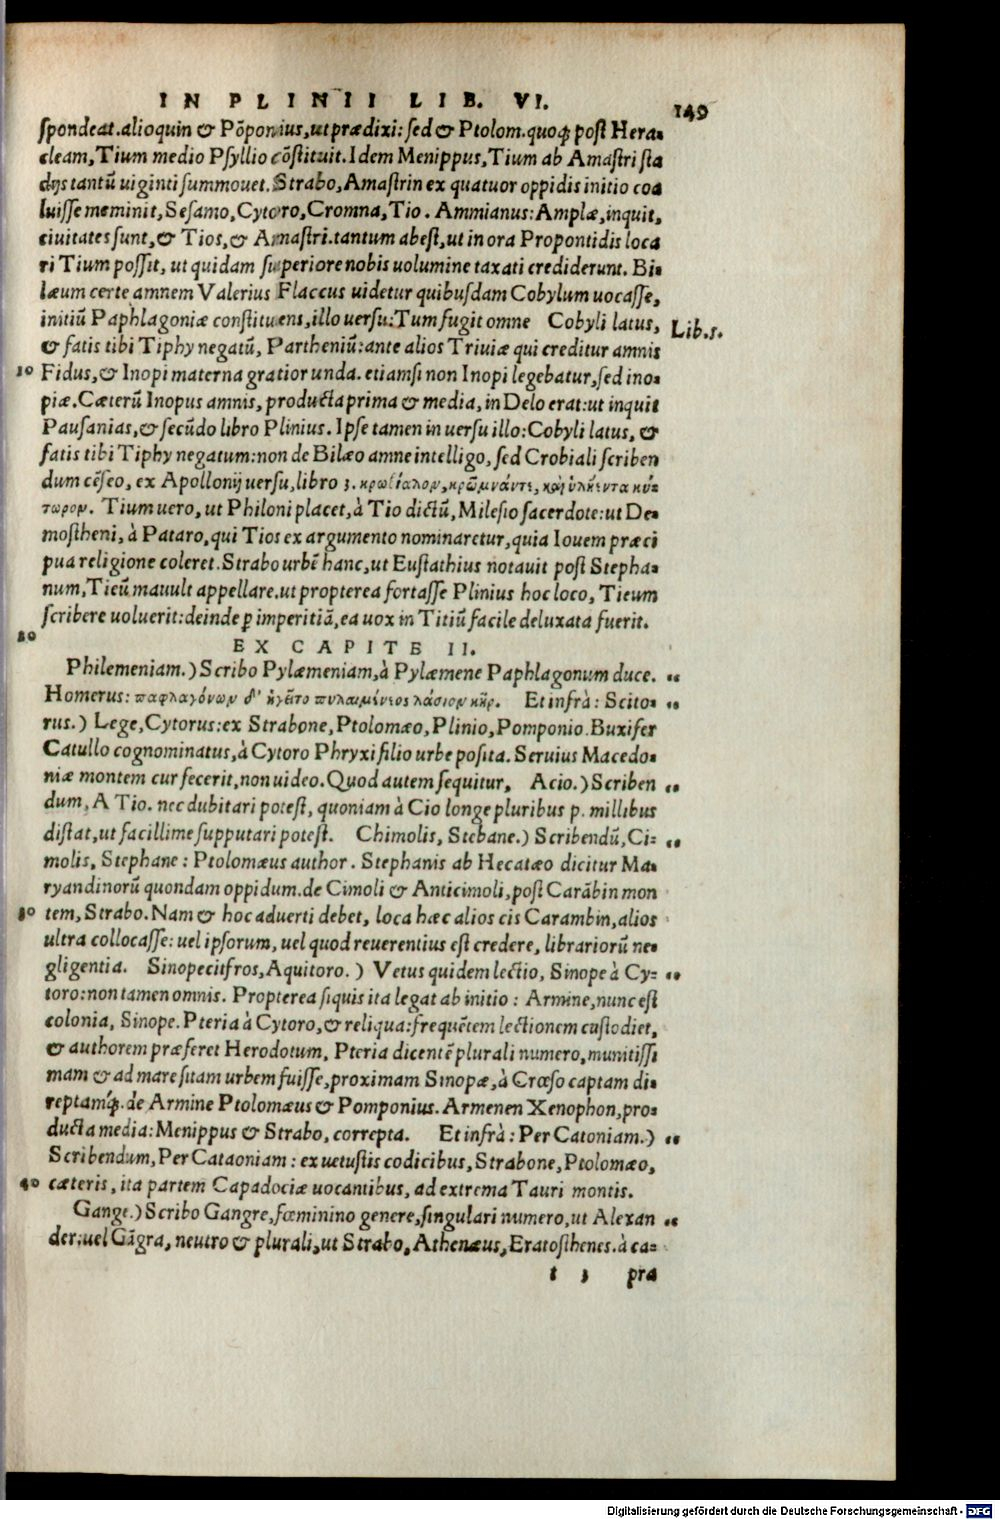 IN PLINII LIB. VI. 149
spondeat.alioquin & Põponius,ut prædixi: sed & Ptolom.quoq; post Hera-
cleam,Tium medio Psyllio cõstituit.Idem Menippus,Tium ab Amastri sta
dijs tantũ uiginti summouet.Strabo,Amastrin ex quatuor oppidis initio coa
luisse meminit,Sesamo,Cytoro,Cromna,Tio. Ammianus:Amplæ,inquit,
ciuitates sunt,& Tios,& Amastri.tantum abest,ut in ora Propontidis loca
ri Tium possit, ut quidam superiore nobis uolumine taxati crediderunt. Bi-
læum certe amnem Valerius Flaccus uidetur quibusdam Cobylum uocasse,
initiũ Paphlagoniæ constituens,illo uersu:Tum fugit omne Cobyli latus, Lib.5.
& fatis tibi Tiphy negatũ, Partheniũ:ante alios Triuiæ qui creditur amnis
10 Fidus,& Inopi materna gratior unda. etiamsi non Inopi legebatur,sed ino-
piæ.Cæterũ Inopus amnis, producta prima & media, in Delo erat:ut inquit
Pausanias,& secũdo libro Plinius. Ipse tamen in uersu illo:Cobyli latus, &
fatis tibi Tiphy negatum:non de Bilæo amne intelligo, sed Crobiali scriben
dum cẽseo, ex Apollonij uersu,libro 3. κρωβίαλον,κρῶμνάντε, καὶ ὑλήεντα κύ-
τωρον. Tium uero, ut Philoni placet,à Tio dictũ,Milesio sacerdote:ut De-
mostheni, à Pataro,qui Tios ex argumento nominaretur,quia Iouem præci
pua religione coleret.Strabo urbẽ hanc,ut Eustathius notauit post Stepha-
num,Ticũ mauult appellare.ut propterea fortasse Plinius hoc loco, Tieum
scribere uoluerit:deinde p imperitiã,ea uox in Titiũ facile deluxata fuerit.
20
EX CAPITE II.
Philemeniam.) Scribo Pylæmeniam,à Pylæmene Paphlagonum duce. "
Homerus: παφλαγόνων δ' ἡγεῖτο πυλαιμένεος λάσιον κῆρ. Et infrà: Scito- "
rus.) Lege,Cytorus:ex Strabone,Ptolomæo,Plinio,Pomponio.Buxifer
Catullo cognominatus,à Cytoro Phryxi filio urbe posita. Seruius Macedo-
niæ montem cur fecerit,non uideo.Quod autem sequitur, Acio.) Scriben "
dum, A Tio. nec dubitari potest, quoniam à Cio longe pluribus p. millibus
distat,ut facillime supputari potest. Chimolis, Stebane.) Scribendũ,Ci- "
molis, Stephane: Ptolomæus author. Stephanis ab Hecatæo dicitur Ma-
ryandinorũ quondam oppidum.de Cimoli & Anticimoli,post Carãbin mon
30 tem,Strabo.Nam & hoc aduerti debet, loca hæc alios cis Carambin,alios
ultra collocasse: uel ipsorum, uel quod reuerentius est credere, librariorũ ne-
gligentia. Sinopecitfros,Aquitoro.) Vetus quidem lectio, Sinope à Cy- "
toro:non tamen omnis. Propterea siquis ita legat ab initio: Armine,nunc est
colonia, Sinope.Pteria à Cytoro,& reliqua:frequẽtem lectionem custodiet,
& authorem præferet Herodotum, Pteria dicentẽ plurali numero,munitissi
mam & ad mare sitam urbem fuisse,proximam Sinopæ,à Crœso captam di-
reptamq;.de Armine Ptolomæus & Pomponius. Armenen Xenophon,pro-
ducta media:Menippus & Strabo, correpta. Et infrà: Per Catoniam.) "
Scribendum,Per Cataoniam: ex uetustis codicibus,Strabone,Ptolomæo,
40 cæteris, ita partem Capadociæ uocantibus, ad extrema Tauri montis.
Gange.) Scribo Gangre,fœminino genere,singulari numero,ut Alexan "
der:uel Gãgra, neutro & plurali,ut Strabo,Athenæus,Eratosthenes.à ca-
t 3 pra
Digitalisierung gefördert durch die Deutsche Forschungsgemeinschaft - DFG